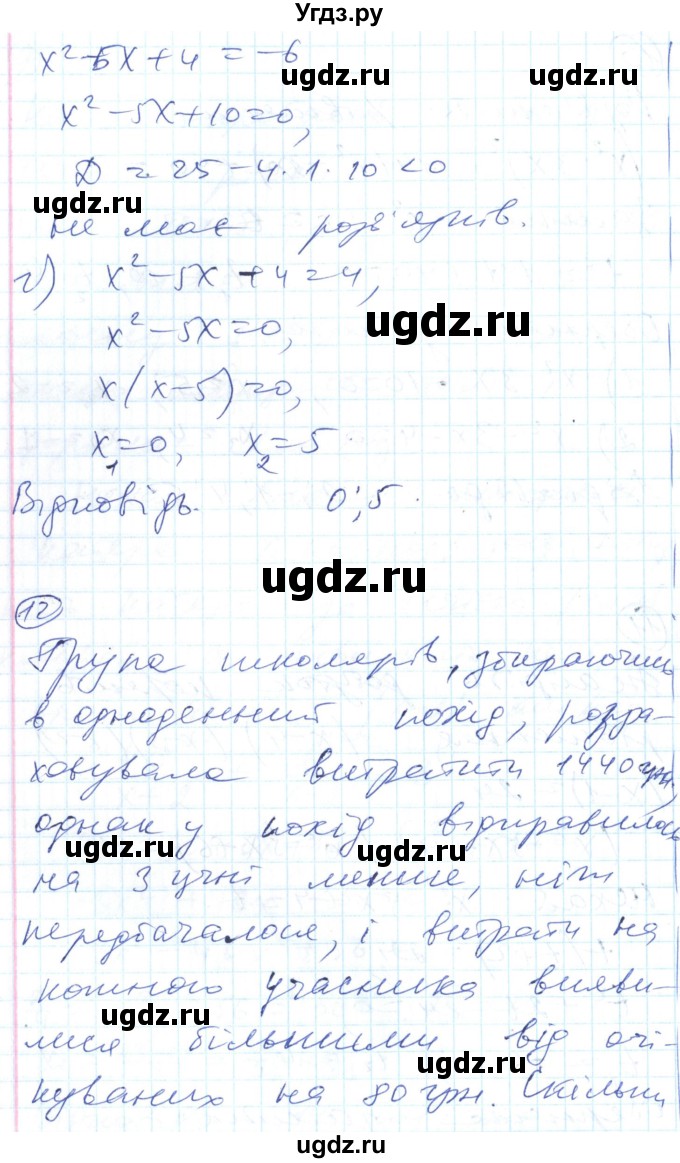 Угдз.ру
x² - 5x + 4 = -6
ugdz.ru
ugdz.ru
x² - 5x + 10 = 0,
D = 25 - 4·1·10 < 0
ugdz.ru
не має розв'язків.
г) x² - 5x + 4 = 4,
x² - 5x = 0,
ugdz.ru
x(x-5) = 0,
x₁ = 0, x₂ = 5
Відповідь. 0; 5.
ugdz.ru
12
Група школярів, збираючись
в одноденний похід, розра-
ховувала витратити 1440 грн,
однак у похід відправилось
ugdz.ru
ugdz.ru
на 3 учні менше, ніж
передбачалося, і витрати на
кожного учасника вияви-
ugdz.ru
лися більшими від очі-
ugdz.ru
куваних на 80 грн. Скільки
ugdz.ru
ugdz.ru